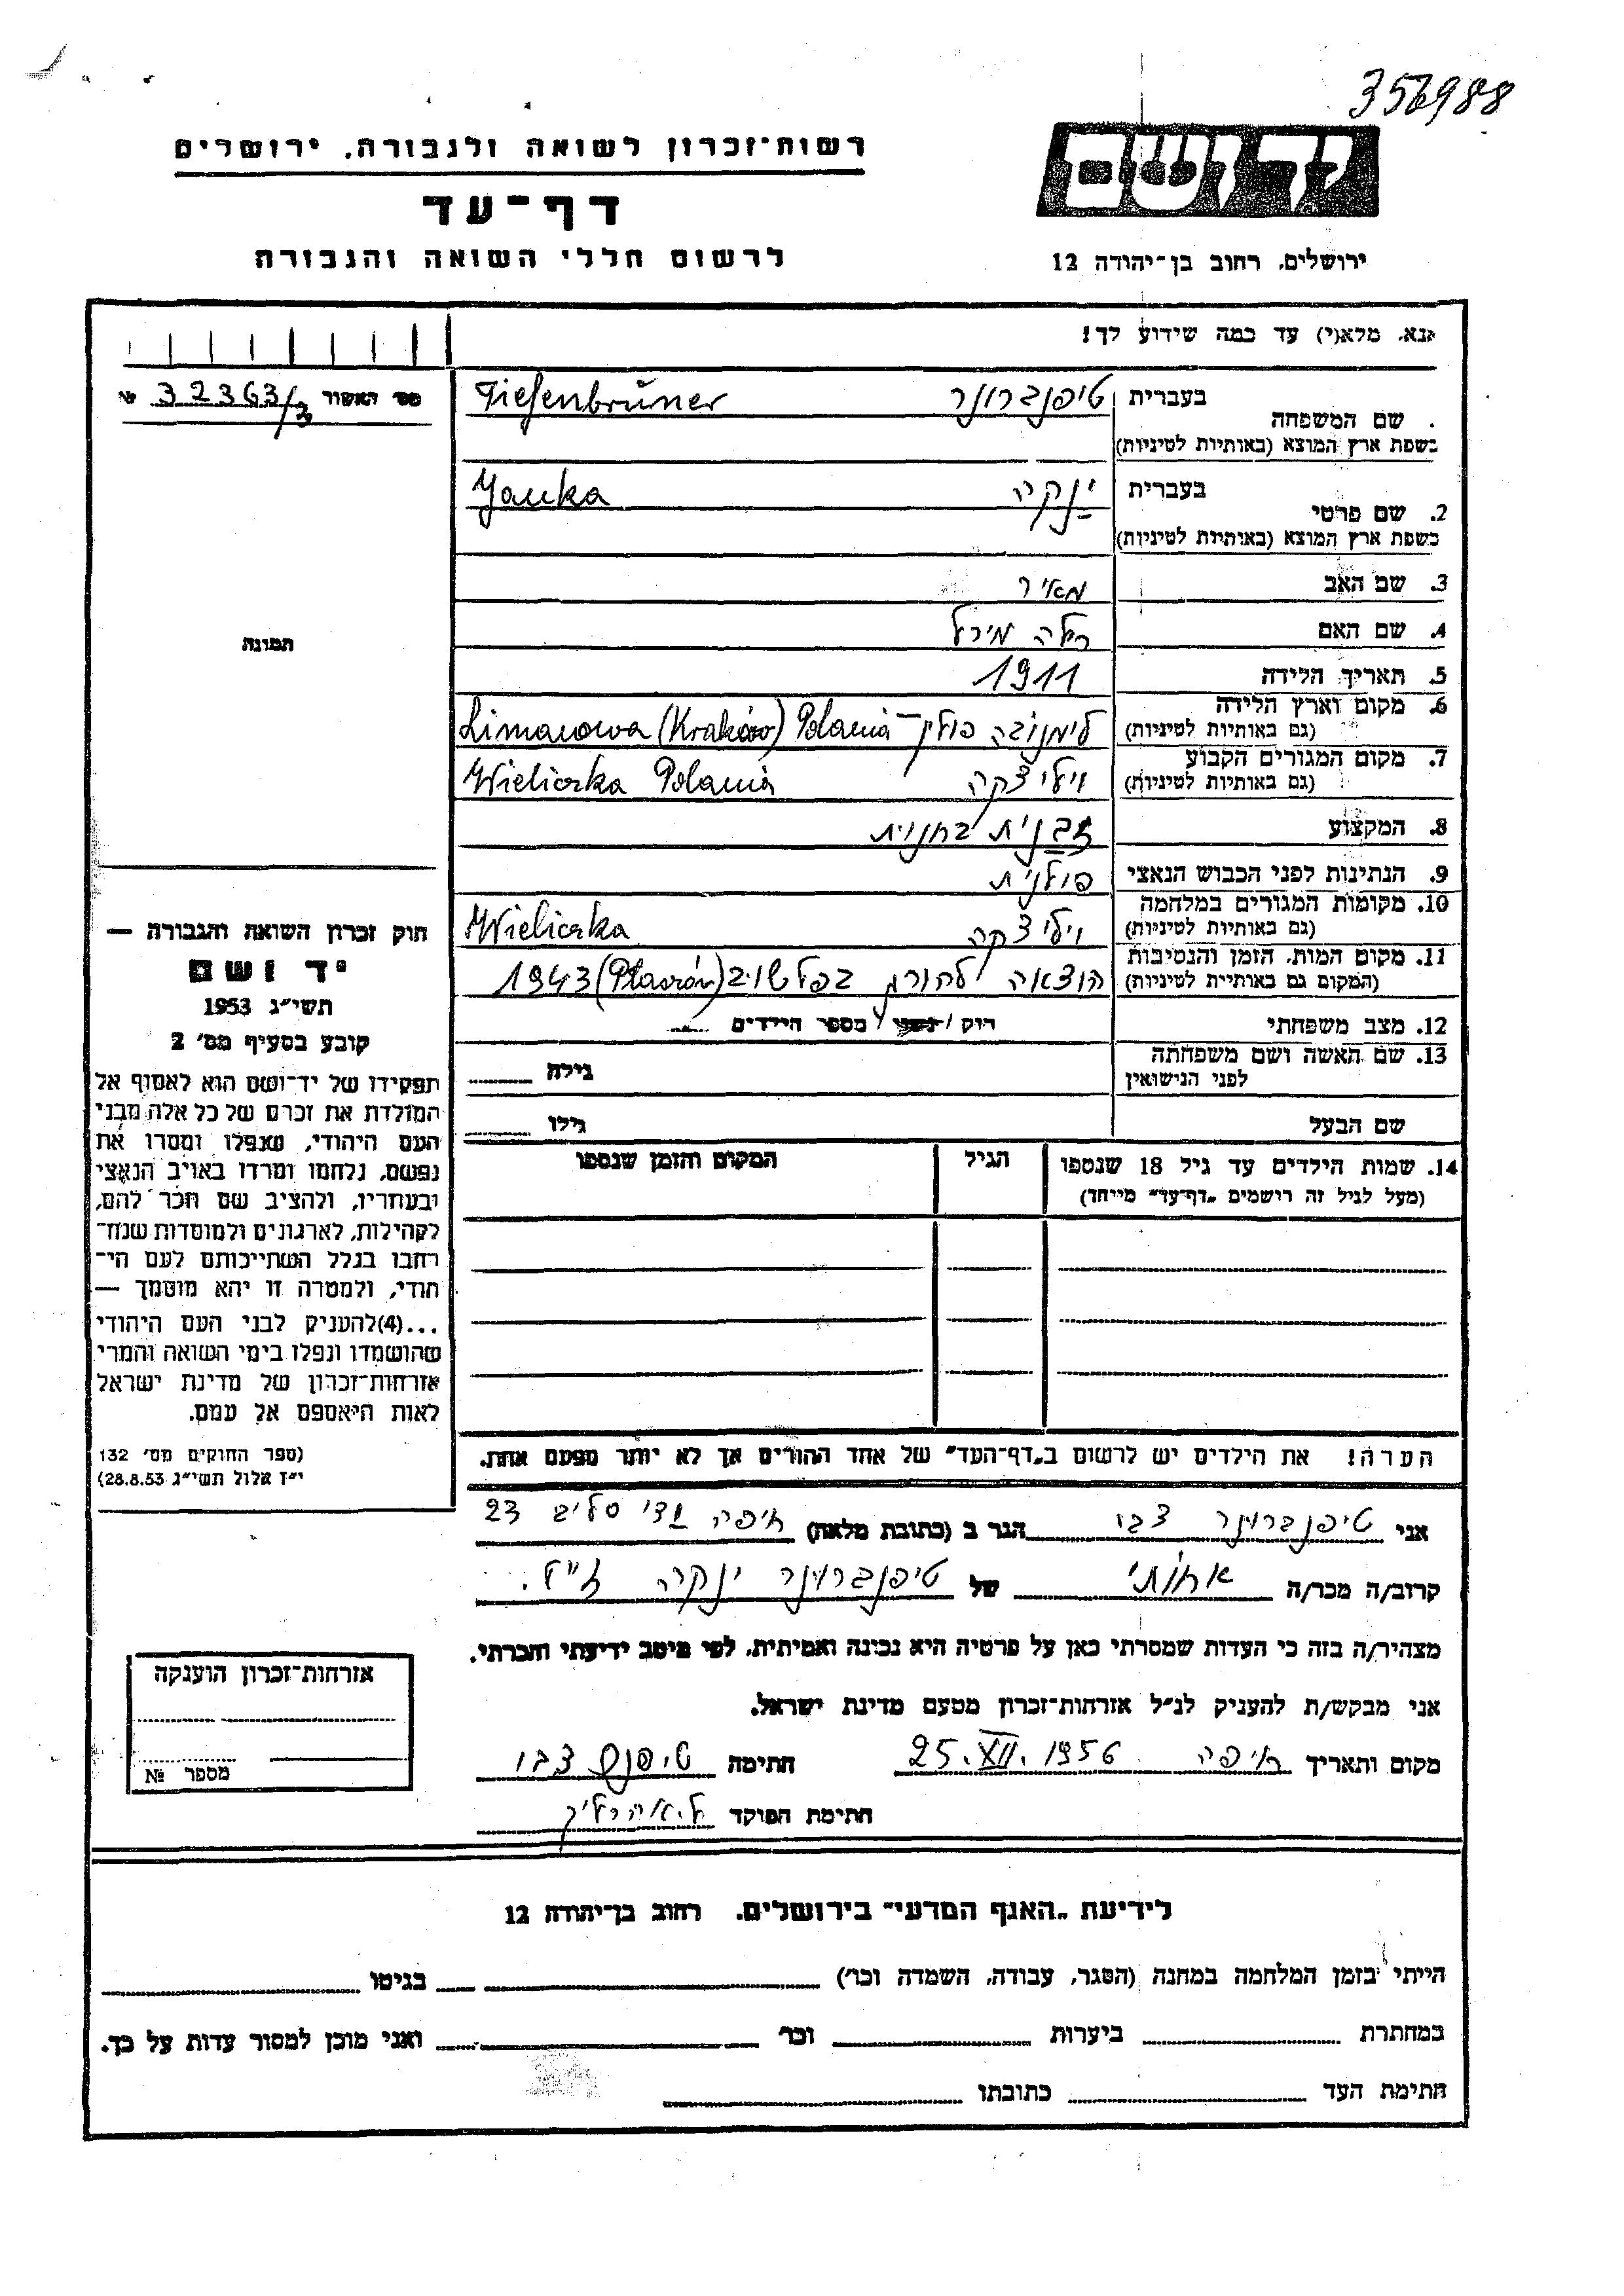 356988
יד ושם
רשות־זכרון לשואה ולגבורה, ירושלים
דף־עד
לרשום חללי השואה והגבורה
ירושלים, רחוב בן־יהודה 12
אנא, מלא(י) עד כמה שידוע לך!
מס׳ האשור 32363/3 №
בעברית טיפנברונר Tiefenbrüner
שם המשפחה
בשפת ארץ המוצא (באותיות לטיניות)
בעברית ינקה Yanka
2. שם פרטי
בשפת ארץ המוצא (באותיות לטיניות)
3. שם האב מאיר
4. שם האם
5. תאריך הלידה 1911
6. מקום וארץ הלידה לימנובה פולין – Limanowa (Kraków) Polania
(גם באותיות לטיניות)
7. מקום המגורים הקבוע ויליצקה Wieliczka Polania
(גם באותיות לטיניות)
8. המקצוע זבנית בחנוית
9. הנתינות לפני הכבוש הנאצי פולנית
10. מקומות המגורים במלחמה ויליצקה Wieliczka
(גם באותיות לטיניות)
11. מקום המות, הזמן והנסיבות הוצאה להורג בפלשוב (Płaszów) 1943
(המקום גם באותיות לטיניות)
12. מצב משפחתי רווק / נשוי / מספר הילדים
13. שם האשה ושם משפחתה
לפני הנישואין גילה
שם הבעל גילו
14. שמות הילדים עד גיל 18 שנספו הגיל המקום והזמן שנספו
(מעל לגיל זה רושמים „דף־עד” מייחד)
תמונה
חוק זכרון השואה והגבורה —
יד ושם
תשי״ג 1953
קובע בסעיף מס׳ 2
תפקידו של יד־ושם הוא לאסוף אל
המולדת את זכרם של כל אלה מבני
העם היהודי, שנפלו ומסרו את
נפשם, נלחמו ומרדו באויב הנאצי
ובעוזריו, ולהציב שם וזכר להם,
לקהילות, לארגונים ולמוסדות שנח־
רבו בגלל השתייכותם לעם הי־
הודי, ולמטרה זו יהא מוסמך —
...(4)להעניק לבני העם היהודי
שהושמדו ונפלו בימי השואה והמרי
אזרחות־זכרון של מדינת ישראל
לאות היאספם אל עמם.
(ספר החוקים מס׳ 132
י״ז אלול תשי״ג 28.8.53)
הערה! את הילדים יש לרשום ב„דף־העד” של אחד ההורים אך לא יותר מפעם אחת.
אני טיפנברונר צבי הגר ב (כתובת מלאה) חיפה ואדי סליב 23
קרוב/ה מכר/ה אחותי של טיפנברונר ינקה ז״ל.
מצהיר/ה בזה כי העדות שמסרתי כאן על פרטיה היא נכונה ואמיתית, לפי מיטב ידיעתי והכרתי.
אני מבקש/ת להעניק לנ״ל אזרחות־זכרון מטעם מדינת ישראל.
מקום ותאריך חיפה 25.XII.1956 חתימה צבי
חתימת הפוקד
אזרחות־זכרון הוענקה
מספר №
לידיעת „האגף המדעי” בירושלים, רחוב בן־יהודה 12
הייתי בזמן המלחמה במחנה (הסגר, עבודה, השמדה וכו׳) בגיטו
במחתרת ביערות וכו׳ ואני מוכן למסור עדות על כך.
חתימת העד כתובתו